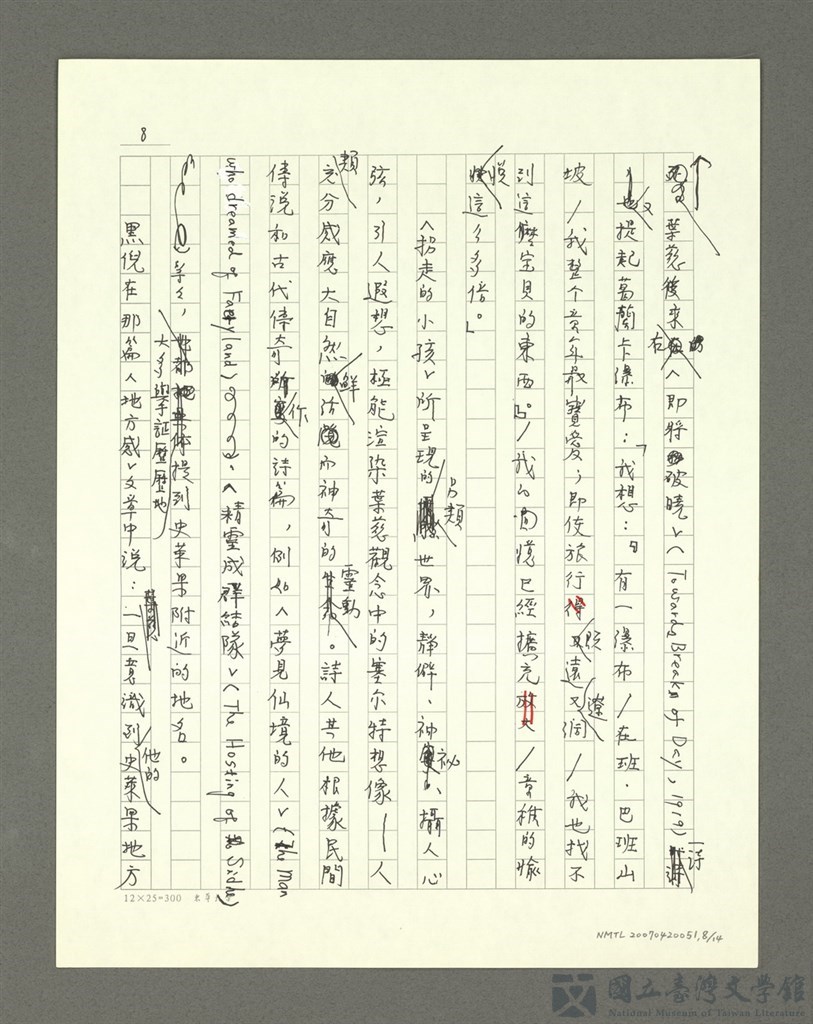 8
葉慈後來在〈即將破曉〉(Towards Break of Day, 1919)一詩
又提起葛蘭卡瀑布:「我想:『有一瀑布/在班.巴班山
坡/我整个童年最寶愛;即使旅行得既遠又遼闊/我也找不
到這麼宝貝的東西。』/我的囘憶已經擴充/童稚的愉
悅這么多倍。」
〈拐走的小孩〉所呈現的另類世界,靜僻、神祕、攝人心
弦,引人遐想,極能渲染葉慈觀念中的塞尔特想像—人
類充分感應大自然鮮活而神奇的靈動。詩人其他根據民間
傳說和古代傳奇作的詩篇,例如〈夢見仙境的人〉(The Man
who dreamed of Faeryland)、〈精靈成群結隊〉(The Hosting of the Sidhe)
等等,大多學証歷歷地提到史萊果附近的地名。
黑倪在那篇〈地方感〉文章中說:一旦意識到他的史萊果地方
12×25=300
NMTL 20070420051, 8/14
國立臺灣文學館
National Museum of Taiwan Literature